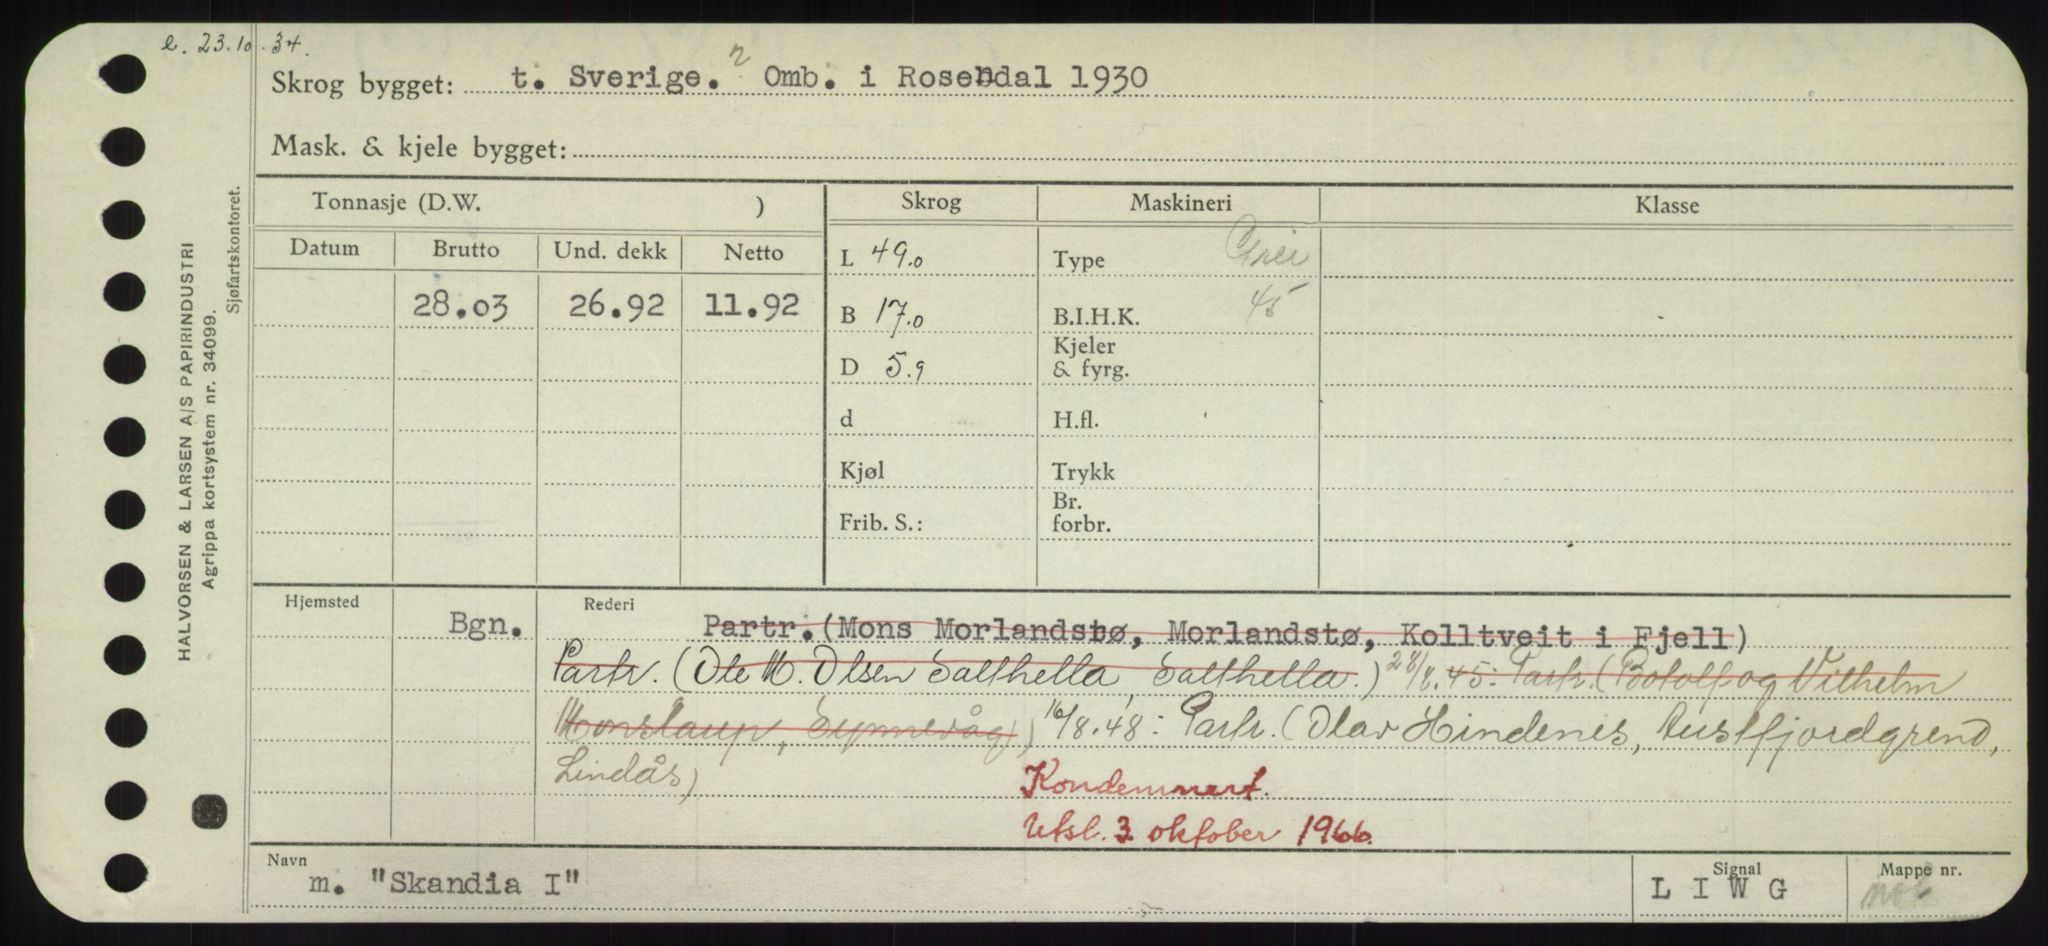 e. 23.10.34.
Skrog bygget: t. Sverige. Omb. i Rosendal 1930
Mask. & kjele bygget:
Tonnasje (D.W. ) Skrog Maskineri Klasse
Datum Brutto Und. dekk Netto
L 49.0 Type
28.03 26.92 11.92 B 17.0 B.I.H.K. 45
D 5.9 Kjeler & fyrg.
d H.fl.
Kjøl Trykk
Frib. S.: Br. forbr.
HALVORSEN & LARSEN A/S PAPIRINDUSTRI
Agrippa kortsystem nr. 34099.
Sjøfartskontoret.
Hjemsted Rederi
Bgn. Partr. (Mons Morlandstø, Morlandstø, Kolltveit i Fjell)
Partr. (Ole M. Olsen Salthella, Salthella.) 28/8.45: Partr. (Botolf og Vilhelm
16/8.48: Partr. (Olav Hindenis, Austfjordgrend,
Lindås)
Kondemnert.
Utsl. 3 oktober 1966.
Navn Signal Mappe nr.
m. "Skandia I" L I W G